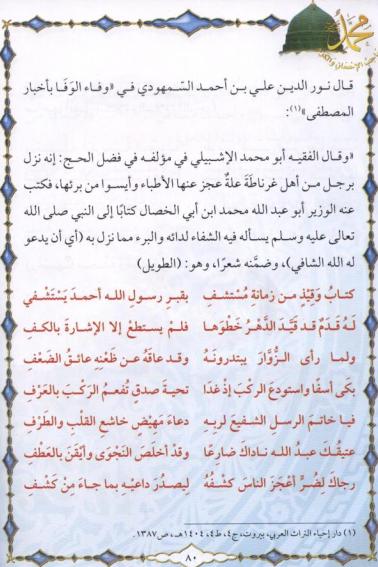 محمد
قال نور الدين علي بن أحمد السّمهودي في «وفاء الوَفَا بأخبار
المصطفى»(١):
«وقال الفقيه أبو محمد الإشبيلي في مؤلفه في فضل الحج: إنه نزل
برجل من أهل غرناطةَ علةٌ عجز عنها الأطباء وأيسوا من برئها، فكتب
عنه الوزير أبو عبد الله محمد ابن أبي الخصال كتابًا إلى النبي صلى الله
تعالى عليه وسلم يسأله فيه الشفاء لدائه والبرء مما نزل به (أي أن يدعو
له الله الشافي)، وضمَّنه شعرًا، وهو: (الطويل)
كتابُ وَقِيْذٍ من زمانةِ مُسْتشفِ بقبرِ رسولِ الله أحمدَ يَسْتَشْفي
لَهُ قدَمٌ قد قَيَّدَ الدَّهْرُ خَطْوَها فلمْ يستطعْ إلا الإشارةَ بالكفِ
ولما رأى الزُّوَّارَ يبتدرونَهُ وقد عاقَهُ عن ظَعْنِهِ عائقُ الضَّعْفِ
بكى أسفًا واستودعَ الركبَ إذْ غدَا تحيةَ صدقٍ تُفعمُ الرَكْبَ بالعَرْفِ
فيا خاتمَ الرسلِ الشفيعَ لربهِ دعاءَ مَهيْضٍ خاشعِ القلْبِ والطَرْفِ
عتيقُكَ عبدُ اللهِ ناداكَ ضارعًا وقدْ أخلَصَ النَجْوَى وأيْقَنَ بالعَطْفِ
رجاكَ لِضُرٍّ أعْجَزَ الناسَ كشْفُهُ ليصدُرَ داعيْهِ بما جاءَ مِنْ كَشْفِ
(١) دار إحياء التراث العربي، بيروت، ج٤، ط٤، ١٤٠٤هـ، ص١٣٨٧.
٨٠